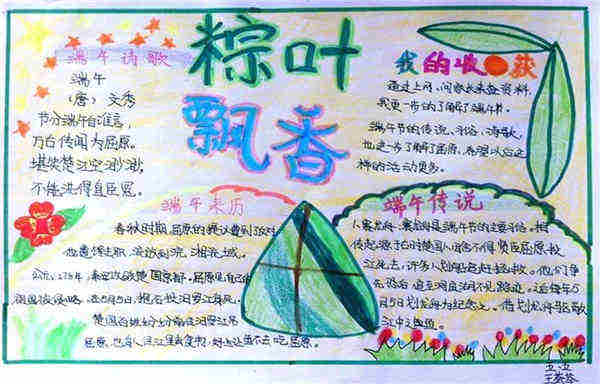 粽叶
飘香
端午诗歌
端午
(唐) 文秀
节分端午自谁言,
万古传闻为屈原。
堪笑楚江空渺渺,
不能洗得直臣冤。
我的收获
通过上网、问家长来查资料,
我更一步的了解了端午节。
端午节的传说、习俗、诗歌,
也进一步了解了屈原。希望以后这
样的活动更多。
端午来历
春秋时期,屈原的
他遭馋去职,流放到沅、湘流域。
公元,278年,秦军攻破楚国京都。屈原见自己的
祖国被侵略,在5月5日,抱石投汨罗江身死。
楚国百姓
屈原
端午传说
赛龙舟,是端午节的主要习俗。相
传起源于古时楚国人因舍不得贤臣屈原投
江死去,许多人划船追赶拯救。他们争
先恐后,追至洞庭湖不见踪迹。之后每年5
月5日划龙舟以纪念之。借划龙舟驱散
江中之鱼
五.五